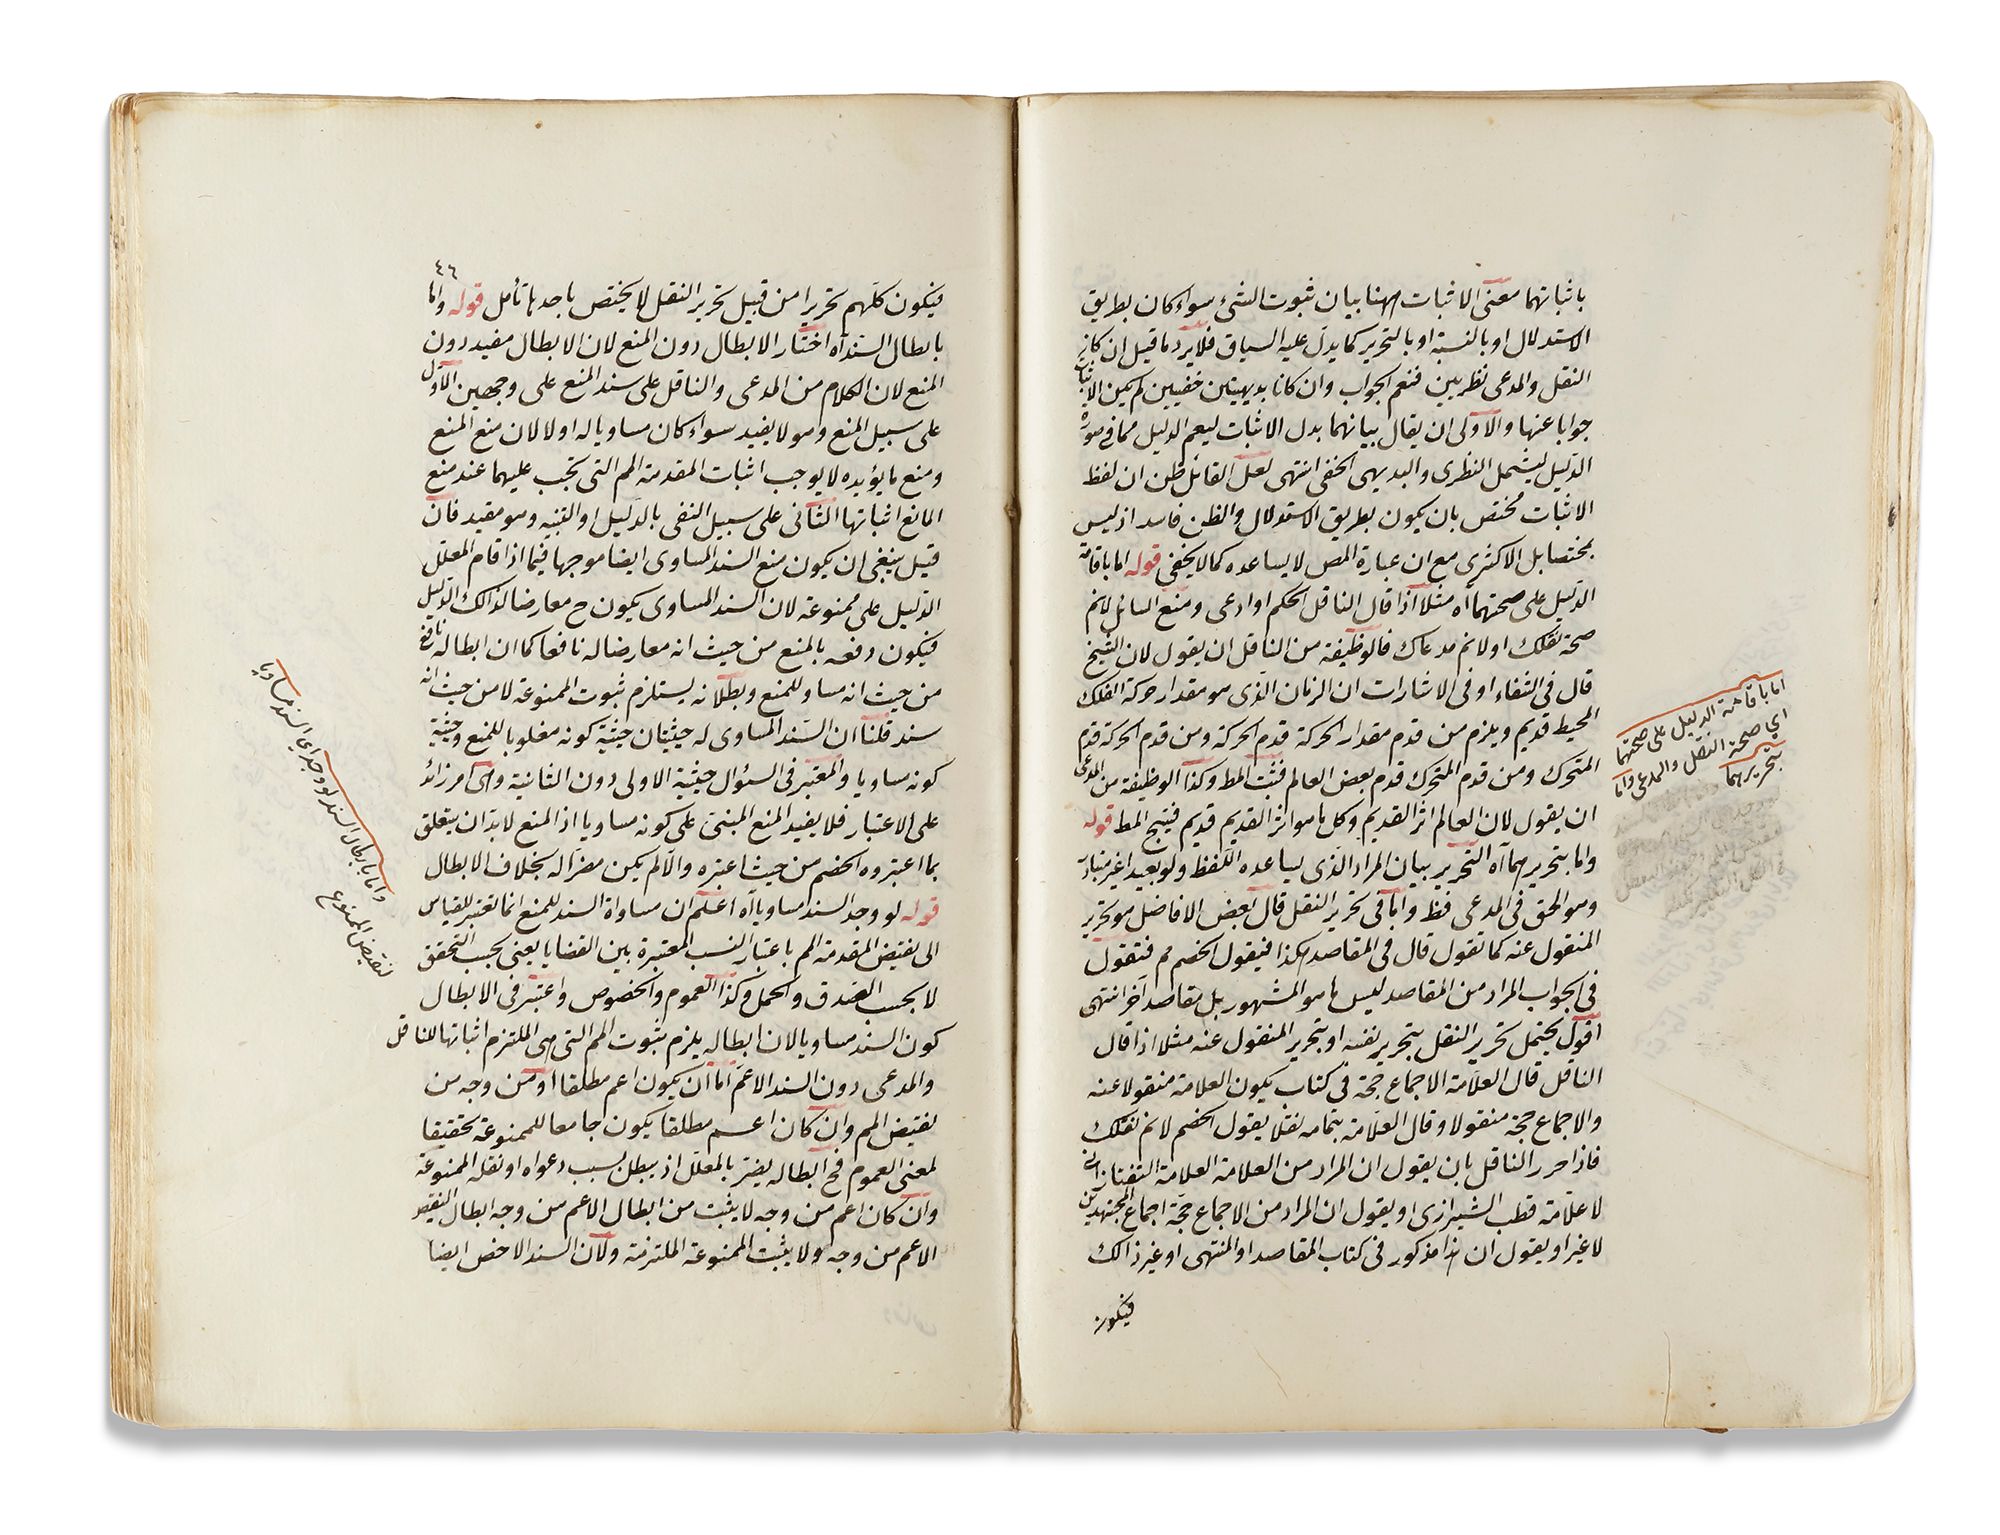 باثباتهما معنى الاثبات ههنا بيان ثبوت الشئ سواء كان بطريق
الاستدلال او بالنسبة او بالتحرير كما يدل عليه السياق فلا يرد ما قيل ان كان
النقل والمدعى نظريين فنعم الجواب وان كانا بديهيتين خفيين لم يكن الاثبات
جوابا عنها والاولى ان يقال بيانهما بدل الاثبات ليعم الدليل مما فى صورة
الدليل ليشمل النظرى والبديهى الخفى انتهى لعل القائل ظن ان لفظ
الاثبات مختص بان يكون بطريق الاستدلال والظن فاسد اذ ليس
بمختصا بل الاكثرى مع ان عبارة المص لا يساعده كما لا يخفى قوله اما باقامة
الدليل على صحتهما آه مثلا اذا قال الناقل الحكم او ادعى ومنع السائل لانم
صحة نقلك او لانم مدعاك فالوظيفة من الناقل ان يقول لان الشيخ
قال فى الشفاء او فى الاشارات ان الزمان الذى هو مقدار حركة الفلك
المحيط قديم ويلزم من قدم مقدار الحركة قدم الحركة ومن قدم الحركة قدم
المتحرك ومن قدم المتحرك قدم بعض العالم فثبت المط وكذا الوظيفة من المدعى
ان يقول لان العالم اثر القديم وكل ما هو اثر القديم قديم فينتج المط قوله
واما بتحريرهما آه التحرير بيان المراد الذى يساعده اللفظ ولو بعيدا غير متبادر
وهو الحق فى المدعى فقط واما فى تحرير النقل قال بعض الافاضل هو تحرير
المنقول عنه كما تقول قال فى المقاصد هكذا فيقول الخصم مم فتقول
فى الجواب المراد من المقاصد ليس ما هو المشهور بل مقاصد آخر انتهى
اقول يحتمل تحرير النقل بتحرير نفسه او بتحرير المنقول عنه مثلا اذا قال
الناقل قال العلامة الاجماع حجة فى كتاب يكون العلامة منقولا عنه
والاجماع حجة منقولا وقال العلامة بتمامه نقلا يقول الخصم لانم نقلك
فاذا حرر الناقل بان يقول ان المراد من العلامة العلامة التفتازانى
لا علامة قطب الشيرازى او يقول ان المراد من الاجماع حجة اجماع المجتهدين
لا غير او يقول ان هذا مذكور فى كتاب المقاصد او المنتهى او غير ذالك
فيكون
اما باقامة الدليل على صحتهما
اي صحة النقل والمدعى واما
بتحريرهما
٤٦
فيكون كلهم تحريرا من قبيل تحرير النقل لا يختص باحدها تأمل قوله واما
بابطال السند آه اختار الابطال دون المنع لان الابطال مفيد دون
المنع لان الكلام من المدعى والناقل على سند المنع على وجهين الاول
على سبيل المنع وهو لا يفيد سواء كان مساويا له اولا لان منع المنع
ومنع ما يؤيده لا يوجب اثبات المقدمة المم التى تجب عليهما عند منع
المانع اثباتها الثانى على سبيل النفى بالدليل او التنبيه وهو مفيد فان
قيل ينبغى ان يكون منع السند المساوى ايضا موجها فيما اذا اقام المعلل
الدليل على ممنوعه لان السند المساوى يكون ح معارضا لذالك الدليل
فيكون دفعه بالمنع من حيث انه معارضا له نافعا كما ان ابطاله نافع
من حيث انه مساو للمنع وبطلانه يستلزم ثبوت الممنوعة لا من حيث انه
سند قلنا ان السند المساوى له حيثيتان حيثية كونه مغلوبا للمنع وحيثية
كونه مساويا والمعتبر فى السئوال حيثية الاولى دون الثانية وهى امر زائد
على الاعتبار فلا يفيد المنع المبنى على كونه مساويا اذ المنع لابد ان يتعلق
بما اعتبروه الخصم من حيث اعتبره والا لم يكن مضرا له بخلاف الابطال
قوله لو وجد السند مساويا آه اعلم ان مساواة السند للمنع انما تعتبر للقياس
الى نقيض المقدمة المم باعتبار النسب المعتبرة بين القضايا يعنى بحسب التحقق
لا بحسب الصدق والحمل وكذا العموم والخصوص واعتبر فى الابطال
كون السند مساويا لان ابطاله يلزم بثبوت المم التى هى الملتزم اثباتها للناقل
والمدعى دون السند الاعم اما ان يكون اعم مطلقا او من وجه من
نقيض المم وان كان اعم مطلقا يكون جامعا للممنوعة تحقيقا
لمعنى العموم فح ابطاله يضر بالمعلل اذ يبطل بسبب دعواه او نقله الممنوعة
وان كان اعم من وجه لا يثبت من ابطال الاعم من وجه ابطال النقيض
الاعم من وجه ولا يثبت الممنوعة الملتزمة ولان السند الاخص ايضا
واما بابطال السند لو وجد اي السند مساويا
لنقيض الممنوع